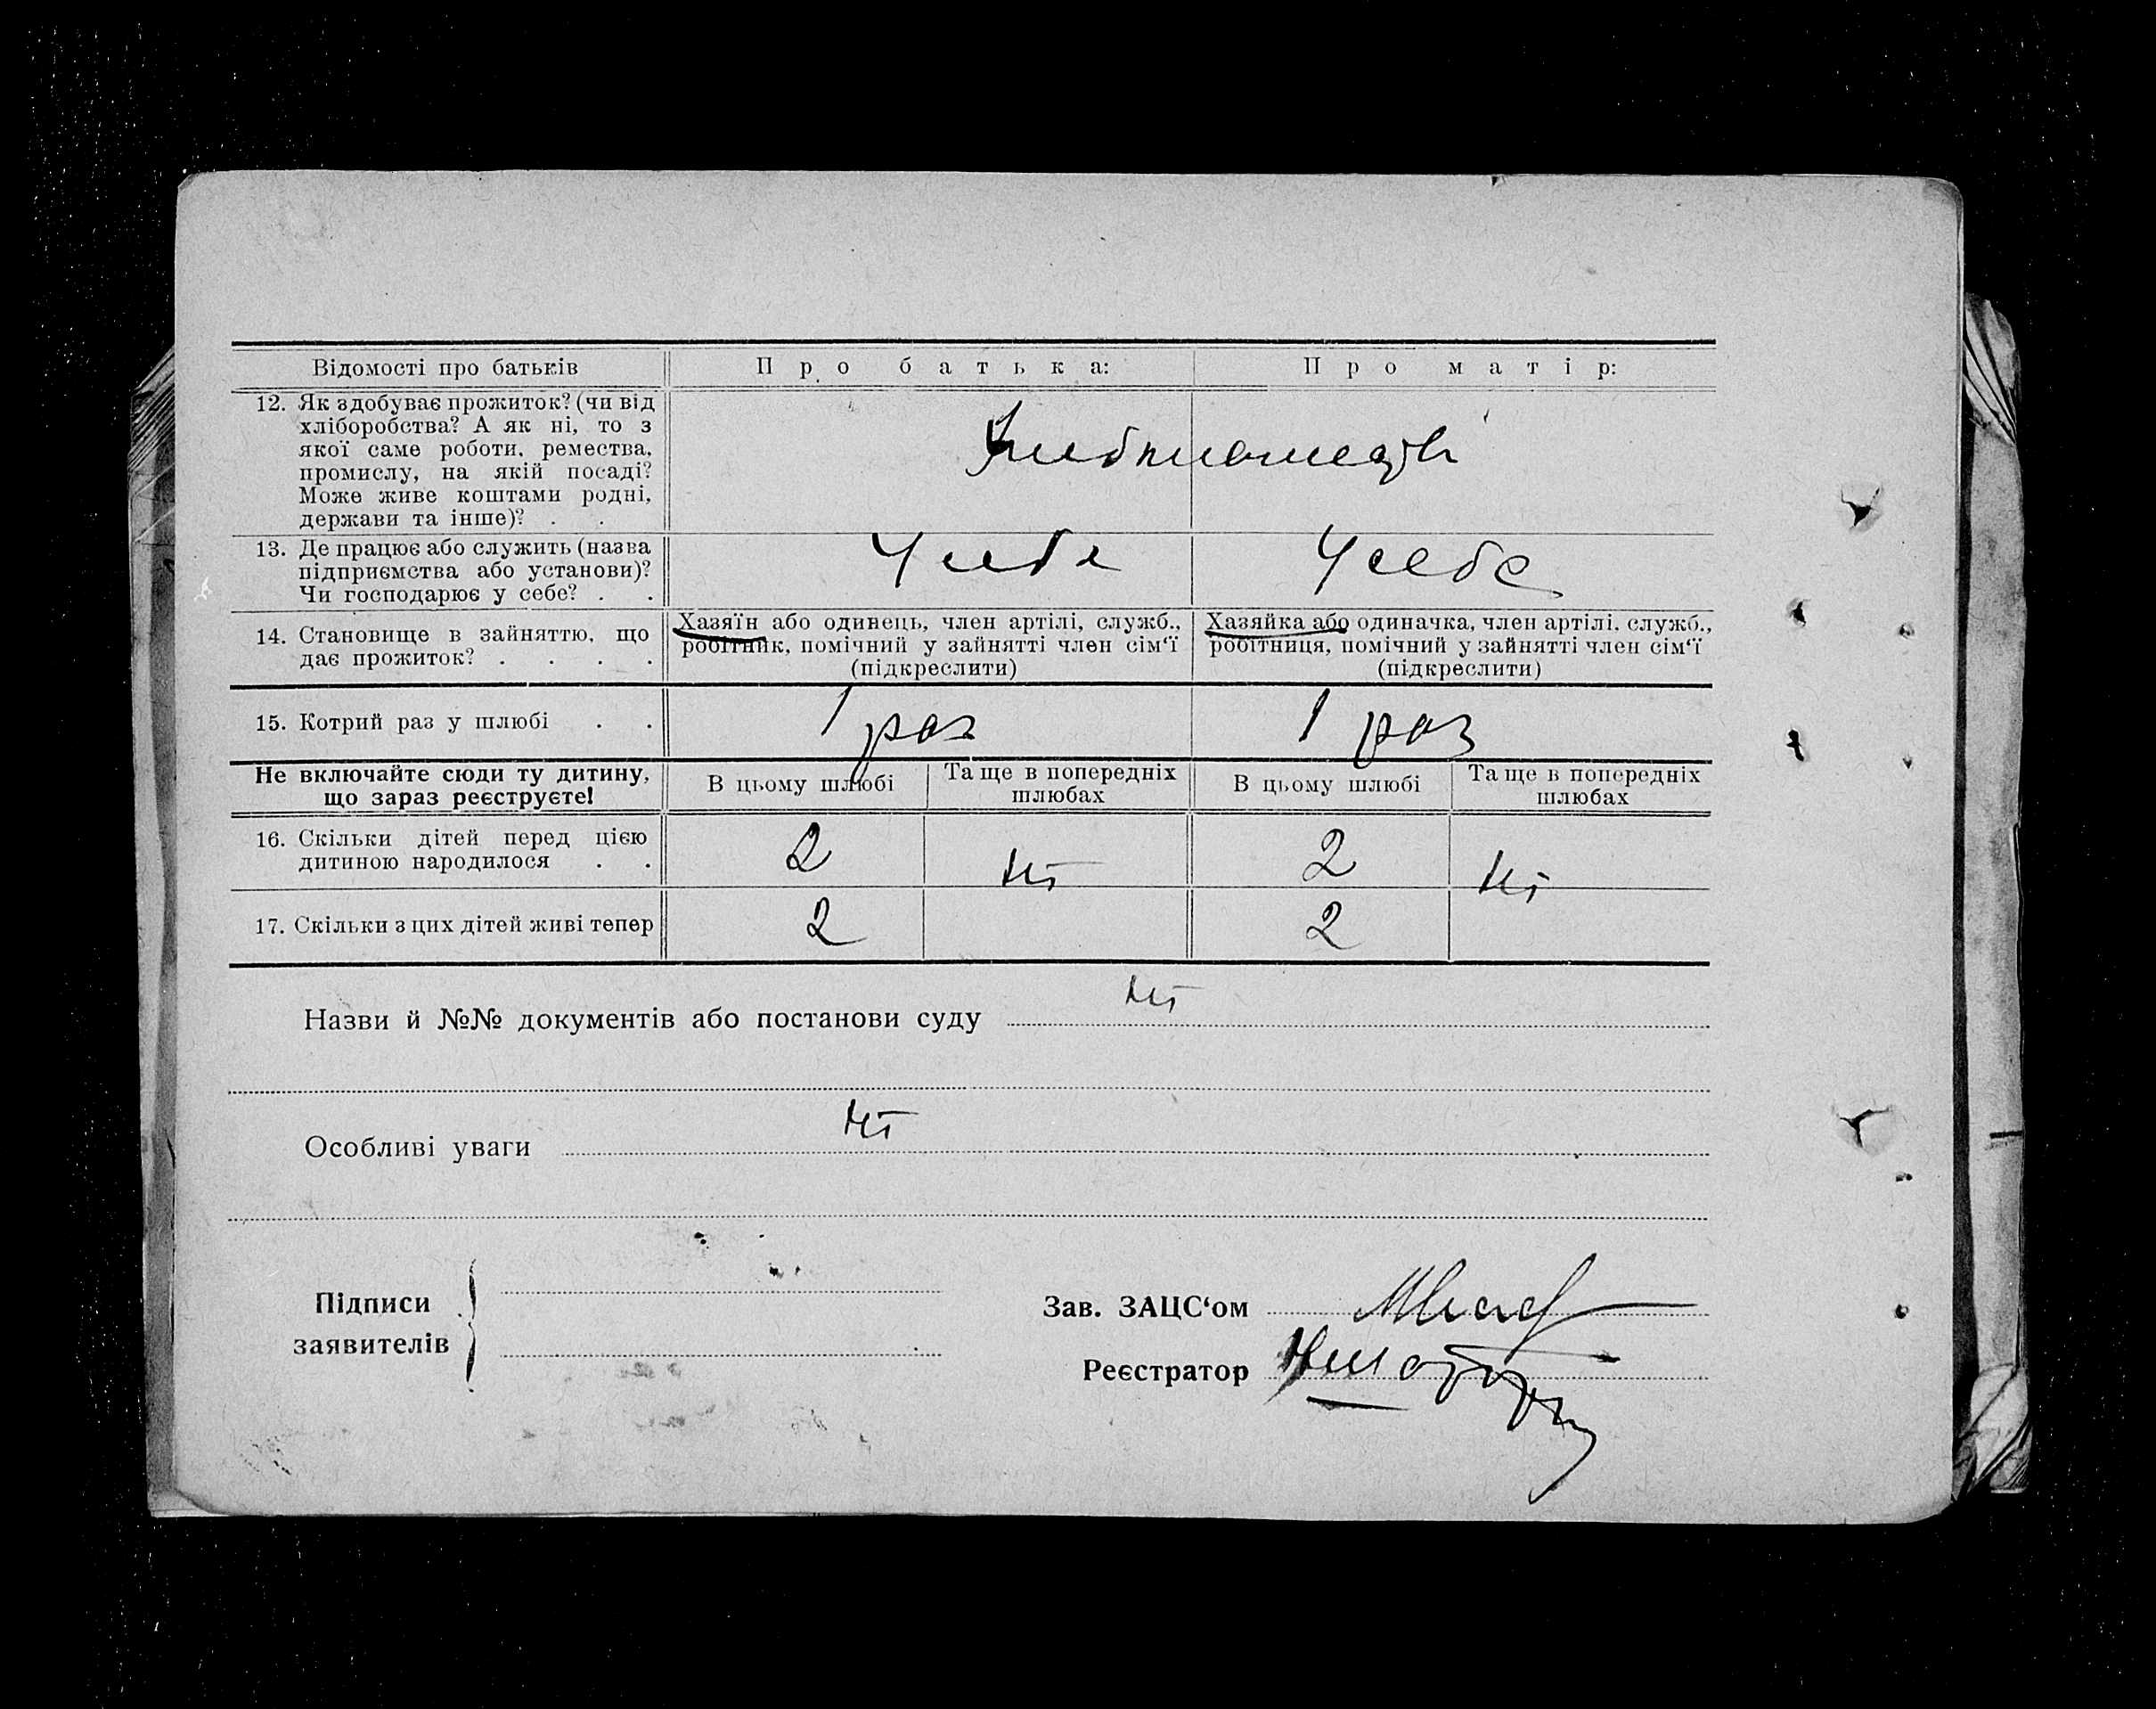 Відомості про батьків
Про батька:
Про матір:
12. Як здобуває прожиток? (чи від
хліборобства? А як ні, то з
якої саме роботи, ремества,
промислу, на якій посаді?
Може живе коштами родні,
держави та інше)? . .
13. Де працює або служить (назва
підприємства або установи)?
Чи господарює у себе? . .
У себе
У себе
14. Становище в зайняттю, що
дає прожиток? . . . .
Хазяїн або одинець, член артілі, служб.,
робітник, помічний у зайнятті член сім‘ї
(підкреслити)
Хазяйка або одиначка, член артілі, служб.,
робітниця, помічний у зайнятті член сім‘ї
(підкреслити)
15. Котрий раз у шлюбі . .
1 раз
1 раз
Не включайте сюди ту дитину,
що зараз реєструєте!
В цьому шлюбі
Та ще в попередніх
шлюбах
В цьому шлюбі
Та ще в попередніх
шлюбах
16. Скільки дітей перед цією
дитиною народилося . .
2
Ні
2
Ні
17. Скільки з цих дітей живі тепер
2
2
Назви й №№ документів або постанови суду
Ні
Особливі уваги
Ні
Підписи
заявителів
Зав. ЗАЦС‘ом
Реєстратор